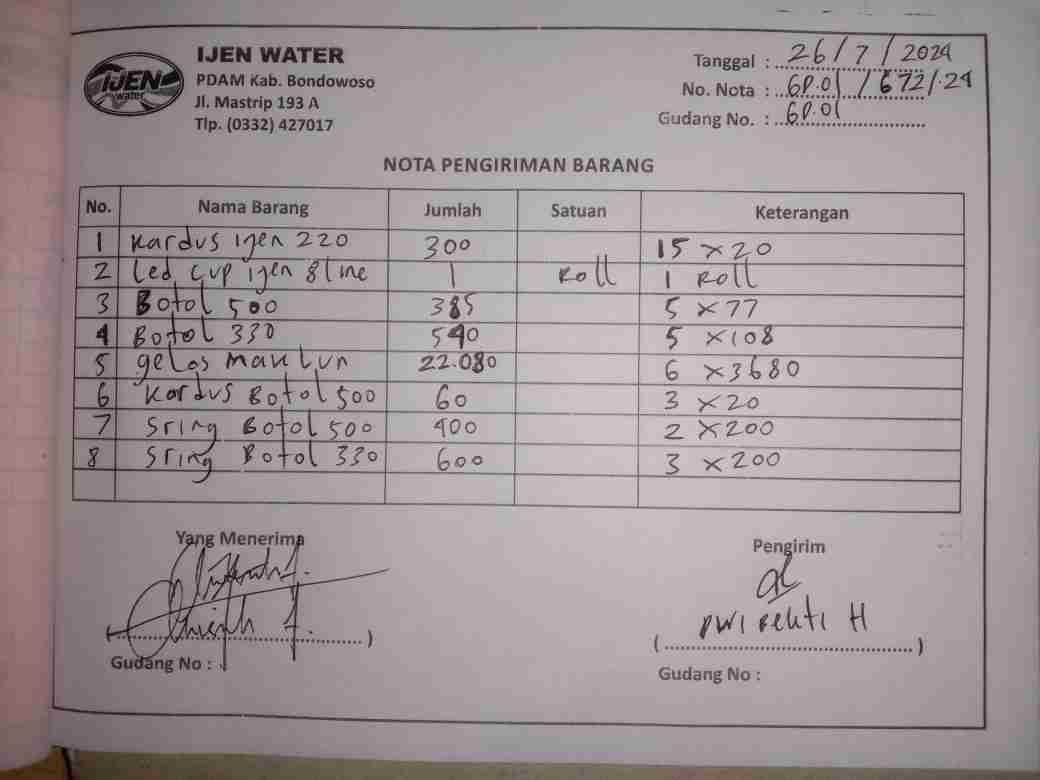 IJEN water
IJEN WATER
PDAM Kab. Bondowoso
Jl. Mastrip 193 A
Tlp. (0332) 427017
Tanggal : 26/7/2024
No. Nota : GD.01/672/.24
Gudang No. : GD.01
NOTA PENGIRIMAN BARANG
No. Nama Barang Jumlah Satuan Keterangan
1 Kardus ijen 220 300 15 x 20
2 Led cup ijen 8 line 1 Roll 1 Roll
3 Botol 500 385 5 x 77
4 Botol 330 540 5 x 108
5 gelas 22.080 6 x 3680
6 Kardus Botol 500 60 3 x 20
7 Sring Botol 500 400 2 x 200
8 Sring Botol 330 600 3 x 200
Yang Menerima
Pengirim
Dwi Bekti H
Gudang No :
Gudang No :